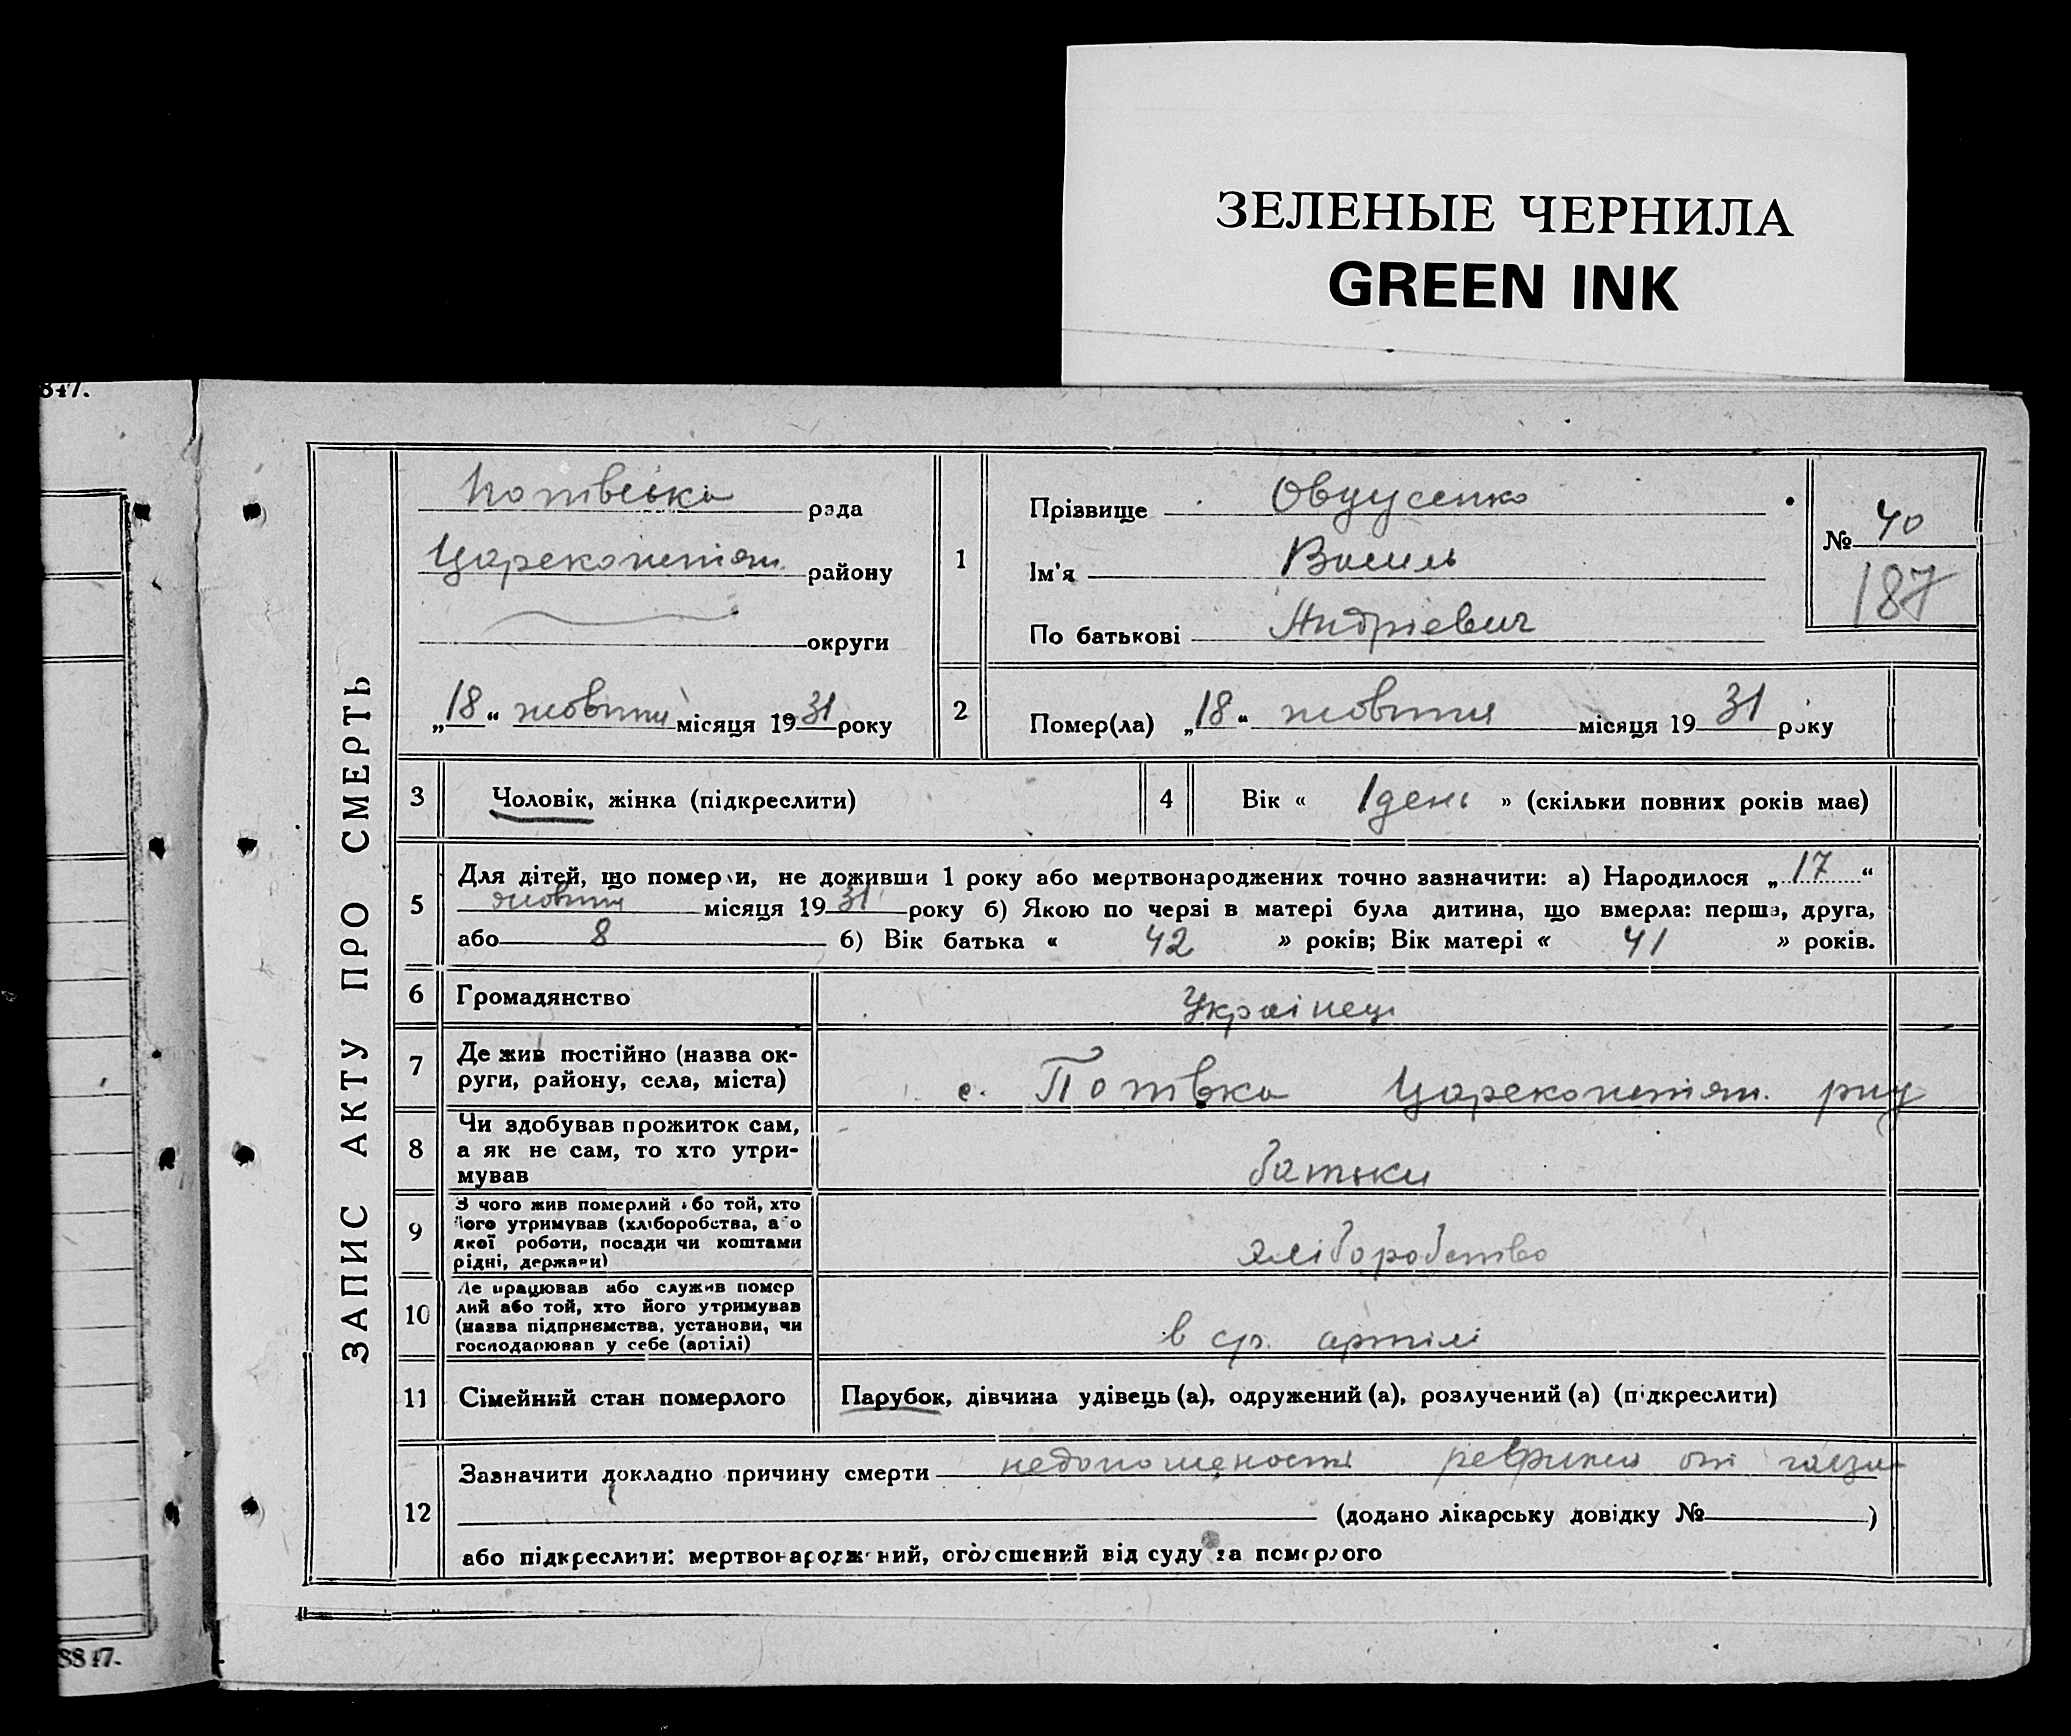 ЗЕЛЕНЫЕ ЧЕРНИЛА
GREEN INK
847.
ЗАПИС АКТУ ПРО СМЕРТЬ
рада
району
округи
„18“ жовтня місяця 1931 року
1
Прізвище
Ім'я Василь
По батькові Андрієвич
№ 40
187
2
Помер(ла) „18“ жовтня місяця 1931 року
3
Чоловік, жінка (підкреслити)
4
Вік « 1 день » (скільки повних років має)
5
Для дітей, що померли, не доживши 1 року або мертвонароджених точно зазначити: а) Народилося „17“
жовтня місяця 1931 року б) Якою по черзі в матері була дитина, що вмерла: перша, друга,
або 8 б) Вік батька « 42 » років; Вік матері « 41 » років.
6
Громадянство
Українец
7
Де жив постійно (назва ок-
руги, району, села, міста)
с. Потівка
8
Чи здобував прожиток сам,
а як не сам, то хто утри-
мував
батьки
9
З чого жив померлий або той, хто
його утримував (хліборобства, або
якої роботи, посади чи коштами
рідні, держави)
хліборобство
10
Де працював або служив помер
лий або той, хто його утримував
(назва підприємства, установи, чи
господарював у себе (артілі)
в с/г. артілі
11
Сімейний стан померлого
Парубок, дівчина удівець (а), одружений (а), розлучений (а) (підкреслити)
12
Зазначити докладно причину смерти
(додано лікарську довідку № )
або підкреслити: мертвонароджений, оголошений від суду за померлого
8847.